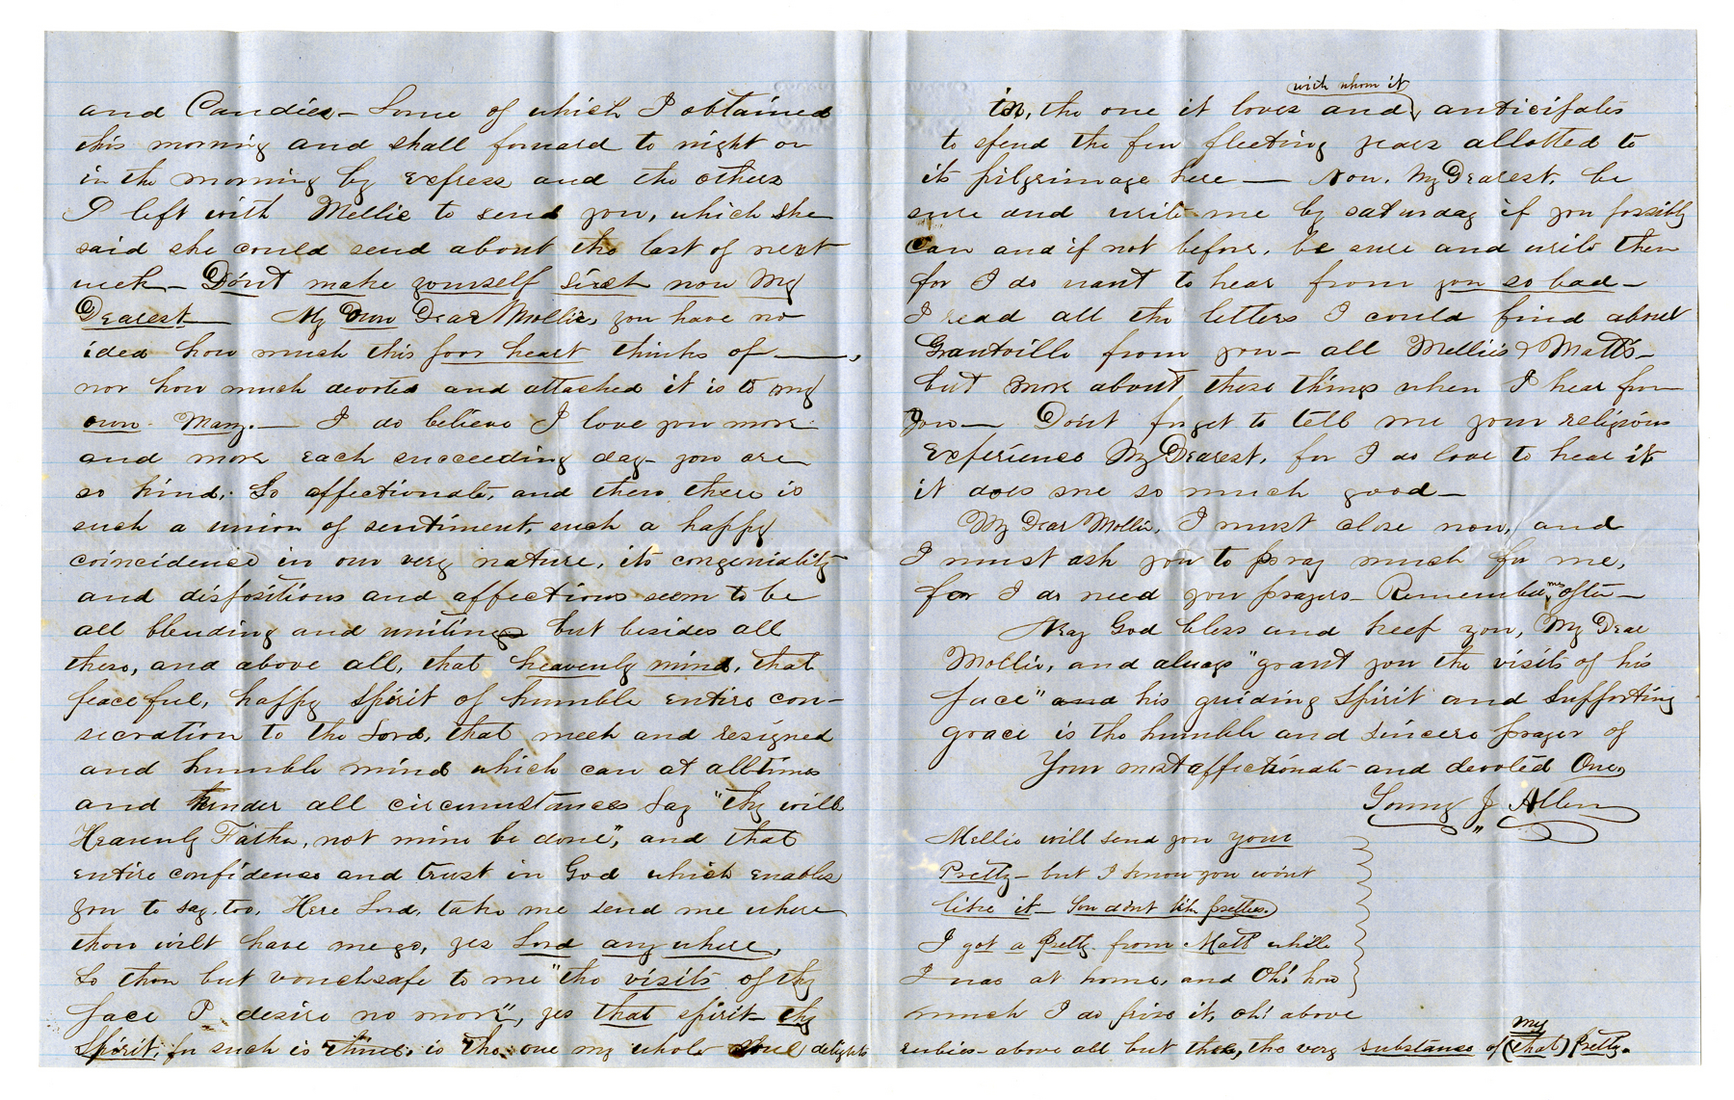 and Candies – Some of which I obtained
this morning and shall forward to night or
in the morning by express and the others
I left with Mellie to send you, which she
said she could send about the last of next
week – Don't make yourself sick now My
Dearest — My Own Dear Mollie, you have no
idea how much this poor heart thinks of —,
nor how much devoted and attached it is to my
own Mary. — I do believe I love you more
and more each succeeding day – you are
so kind, So affectionate, and then there is
such a union of sentiment, such a happy
coincidence in our very nature, its congeniality
and dispositions and affections seem to be
all blending and uniting but besides all
these, and above all, that heavenly mind, that
peaceful, happy spirit of humble entire con-
secration to the Lord, that meek and resigned
and humble mind which can at all times
and under all circumstances Say "thy will
Heavenly Father, not mine be done", and that
entire confidence and trust in God which enables
you to say, too, Here Lord, take me send me where
thou wilt have me go, yes Lord any where,
So thou but vouchsafe to me "the visits of thy
face I desire no more", yes that spirit – thy
Spirit, for such is thine, is the one my whole soul delights
with whom it
in, the one it loves and anticipates
to spend the few fleeting years allotted to
its pilgrimage here — Now, My Dearest, be
sure and write me by saturday if you possibly
can and if not before, be sure and write then
for I do want to hear from you so bad –
I read all the letters I could find about
Grantville from you – all Mellie's & Matt's –
but more about these things when I hear from
you — Don't forget to tell me your religious
experience My Dearest, for I do love to hear it
it does me so much good –
My Dear Mollie, I must close now, and
I must ask you to pray much for me,
for I do need you prayers – Remember me often –
May God bless and keep you, My Dear
Mollie, and always "grant you the visits of his
face" and his guiding Spirit and Supporting
grace is the humble and sincere prayer of
Your most affectionate and devoted One,
Young J Allen
Mellie will send you your
Pretty – but I know you wont
like it – You dont like pretties.)
I got a Pretty from Matt while
I was at home, and Oh! how
much I do prize it, oh! above
rubies – above all but the, the very substance of (that) Pretty.
my